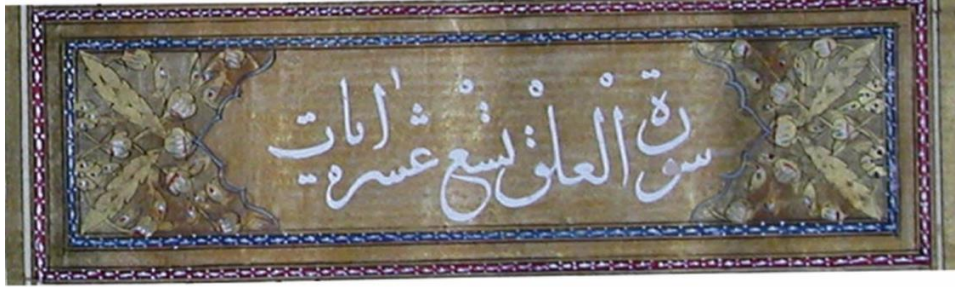 سورة الْعلقْ تسْع عشره اٰيات